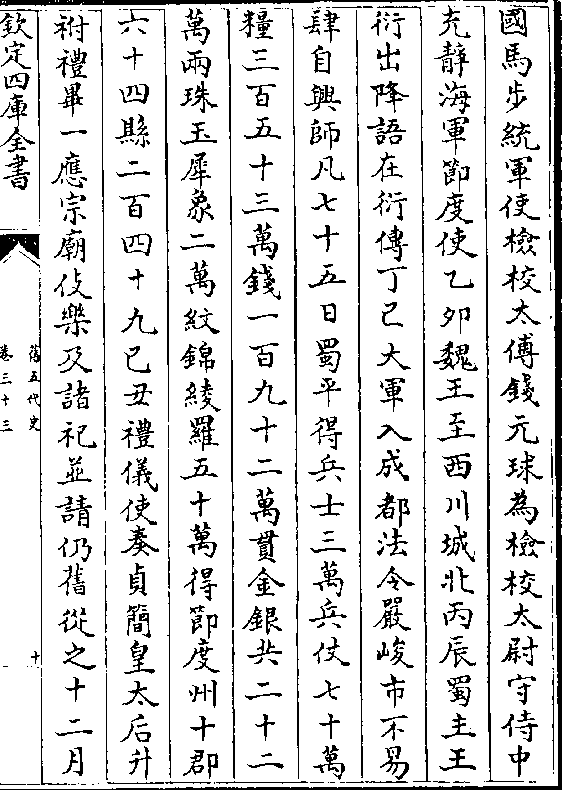 國馬步統軍使檢校太傅錢元球為檢校太尉守侍中
充靜海軍節度使乙卯魏王至西川城北丙辰蜀主王
衍出降語在衍傳丁巳大軍入成都法令嚴峻市不易
肆自興師凡七十五日蜀平得兵士三萬兵仗七十萬
糧三百五十三萬錢一百九十二萬貫金銀共二十二
萬兩珠玉犀象二萬紋錦綾羅五十萬得節度州十郡
六十四縣二百四十九己丑禮儀使奏貞簡皇太后升
祔禮畢一應宗廟伎樂及諸祀並請仍舊從之十二月
欽定四庫全書
舊五代史
卷三十三
十